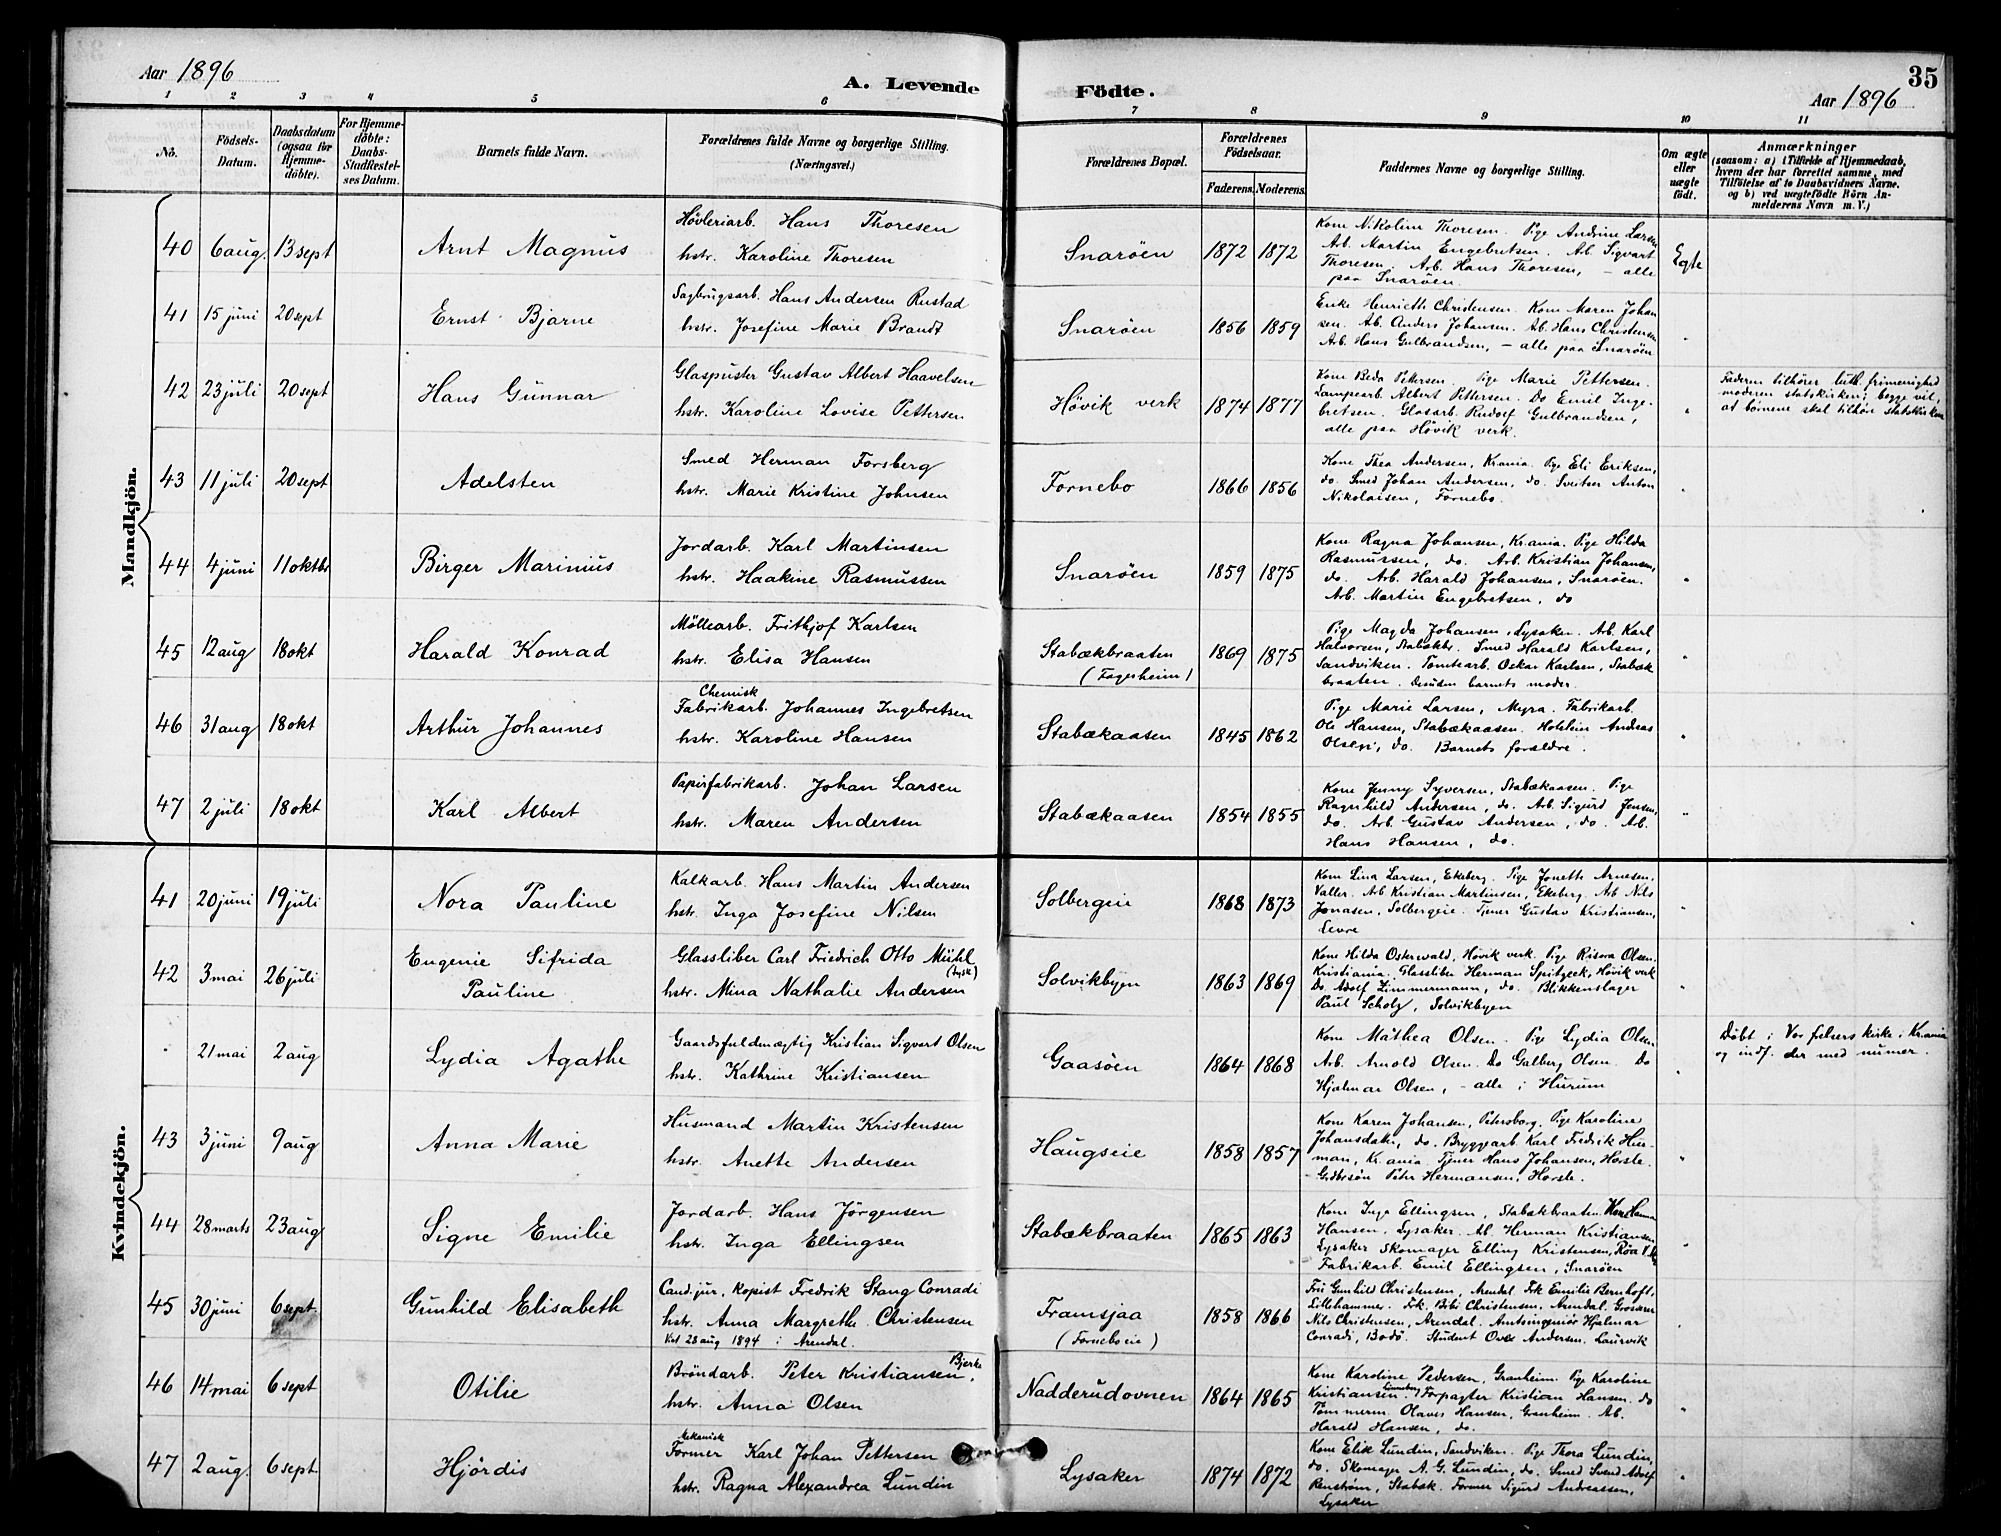 Aar 1896
A. Levende
Födte.
Aar 1896
35
1 2 3 4 5 6 7 8 9 10 11
No.
Födsels-
Datum.
Daabsdatum
(ogsaa for
Hjemme-
döbte).
For Hjemme-
döbte:
Daabs-
Stadfæstel-
ses Datum.
Barnets fulde Navn.
Forældrenes fulde Navne og borgerlige Stilling.
(Næringsvei.)
Forældrenes Bopæl.
Forældrenes
Födselsaar.
Faderens. Moderens.
Faddernes Navne og borgerlige Stilling.
Om ægte
eller
uægte
födt.
Anmærkninger
(saasom: a) i Tilfælde af Hjemmedaab,
hvem der har forrettet samme, med
Tilföielse af to Daabsvidners Navne.
og b) ved uægtefödte Börn An-
melderens Navn m. V.)
Mandkjön.
40 6 aug. 13 sept Arnt Magnus
Høvleriarb. Hans Thoresen
hstr. Karoline Thoresen
Snarøen 1872 1872
Kone Nikoline Thoresen. Pige Andrine Larsen
Arb. Martin Engebretsen. Arb. Sigvart
Thoresen. Arb. Hans Thoresen, – alle
paa Snarøen.
Egte
41 15 juni 20 sept Ernst Bjarne
Sagbrugsarb. Hans Andersen Rustad
hstr. Josefine Marie Brandt
Snarøen 1856 1859
Enke Henriette Christensen. Kone Maren Johan
sen. Ab. Anders Johansen. Ab. Hans Christensen
Arb. Hans Gulbrandsen, – alle paa Snarøen
"
42 23 juli 20 sept Hans Gunnar
Glaspuster Gustav Albert Haavelsen
hstr. Karoline Lovise Pettersen
Høvik verk 1874 1877
Kone Beda Pettersen. Pige Marie Pettersen.
Lampearb. Albert Pettersen. Do Emil Inge-
bretsen. Glasarb. Rudolf Gulbrandsen,
alle paa Høvik verk.
"
Faderen tilhører luth. frimenighed
moderen statskirken; begge vil,
at børnene skal tilhøre statskirken
43 11 juli 20 sept Adelsten
Smed Herman Forsberg
hstr. Marie Kristine Johnsen
Fornebo 1866 1856
Kone Thea Andersen, Kr.ania. Pige Eli Eriksen,
do. Smed Johan Andersen, do. Sveitser Anton
Nikolaisen, Fornebo.
"
44 4 juni 11 oktbr Birger Marinius
Jordarb. Karl Martinsen
hstr. Haakine Rasmussen
Snarøen 1859 1875
Kone Ragna Johansen, Kr.ania. Pige Hilda
Rasmussen, do. Arb. Kristian Johansen,
do. Arb. Harald Johansen, Snarøen.
Arb. Martin Engebretsen, do
"
45 12 aug 18 okt Harald Konrad
Möllearb. Frithjof Karlsen
hstr. Elisa Hansen
Stabækbraaten
(Fagerheim)
1869 1875
Pige Magda Johansen, Lysaker. Ab. Karl
Halvorsen, Stabækbr. Smed Harald Karlsen,
Sandviken. Tomtearb. Oskar Karlsen, Stabæk
braaten. Desuden barnets moder.
"
46 31 aug 18 okt Arthur Johannes
Chemisk
Fabrikarb. Johannes Ingebretsen
hstr. Karoline Hansen
Stabækaasen 1845 1862
Pige Marie Larsen, Myra. Fabrikarb.
Ole Hansen, Stabækaasen. Holstein Andreas
Olsen, do. Barnets forældre.
"
47 2 juli 18 okt Karl Albert
Papirfabrikarb. Johan Larsen
hstr. Maren Andersen
Stabækaasen 1854 1855
Kone Jenny Syversen, Stabækaasen. Pige
Ragnhild Andersen, do. Arb. Sigurd Jensen,
do. Arb. Gustav Andersen, do. Ab.
Hans Hansen, do.
"
Kvindekjön.
41 20 juni 19 juli Nora Pauline
Kalkarb. Hans Martin Andersen
hstr. Inga Josefine Nilsen
Solbergeie 1868 1873
Kone Lina Larsen, Ekeberg. Pige Jonette Arnesen,
Valler. Arb Kristian Martinsen, Ekeberg. Ab Nils
Jonasen, Solbergeie. Tjener Gustav Kristiansen,
Levre
"
42 3 mai 26 juli Eugenie Sifrida
Pauline
Glassliber Carl Friedrich Otto Mühl
(tysk)
hstr. Mina Nathalie Andersen
Solvikbyen 1863 1869
Kone Hilda Osterwald, Høvik verk. Pige Risora Olsen.
Kristiania. Glassliber Herman Spitzeck, Høvik verk
Do Adolf Zimmermann, do. Blikkenslager
Paul Scholz, Solvikbyen
"
21 mai 2 aug Lydia Agathe
Gaardsfuldmægtig Kristian Sigvart Olsen
hstr. Kathrine Kristiansen
Gaasøen 1864 1868
Kone Mathea Olsen. Pige Lydia Olsen
Arb. Arnold Olsen. Do Galberg Olsen. Do
Hjalmar Olsen, – alle i Hurum
"
Døbt i Vor frelsers kirke, Kr.ania
og indf. der med numer.
43 3 juni 9 aug Anna Marie
Husmand Martin Kristensen
hstr. Anette Andersen
Haugseie 1858 1857
Kone Karen Johansen, Petersborg. Pige Karoline
Johansdatr, do. Bryggearb Karl Fredrik Hus-
man, Kr.ania Tjener Hans Johansen, Horsle.
Peter Hermansen, Horsle.
"
44 28 marts 23 aug Signe Emilie
Jordarb. Hans Jørgensen
hstr. Inga Ellingsen
Stabækbraaten 1865 1863
Kone Inga Ellingsen, Stabækbraaten. Kone Hanna
Hansen, Lysaker. Ab. Herman Kristiansen
Lysaker Skomager Elling Kristensen, Røa
Fabrikarb. Emil Ellingsen, Snarøen
"
45 30 juni 6 sept. Gunhild Elisabeth
Cand. jur., kopist Fredrik Stang Conradi
hstr. Anna Margrethe Christensen
Viet 28 aug 1894 i Arendal.
Framsjaa
(Forneboeie)
1858 1866
Fru Gunhild Christensen, Arendal Frk Emilie Bernhoft,
Lillehammer. Frk. Bibi Christensen, Arendal. Grosserer
Nils Christensen, Arendal. Amtsingeniør Hjalmar
Conradi, Bodø. Student Over Andersen, Laurvik
"
46 14 mai 6 sept Otilie
Brøndarb. Peter Kristiansen Bjerke,
hstr. Anna Olsen
Nadderudovnen 1864 1865
Kone Karoline Pedersen, Granheim. Pige Karoline
Kristiansen Forpagter Kristian Hansen. do
Tømmerm. Olaves Hansen, Granheim. Ab.
Harald Hansen, do.
"
47 2 aug. 6 sept. Hjørdis
Mekanisk
Former Karl Johan Pettersen
hstr. Ragna Alexandrea Lundin
Lysaker 1874 1872
Kone Elise Lundin, Sandviken. Pige Thora Lundin,
do. Skomager A. G. Lundin, do. Smed Svend Adolf
Renstrøm, Stabæk. Former Sigurd Andreassen,
Lysaker
"